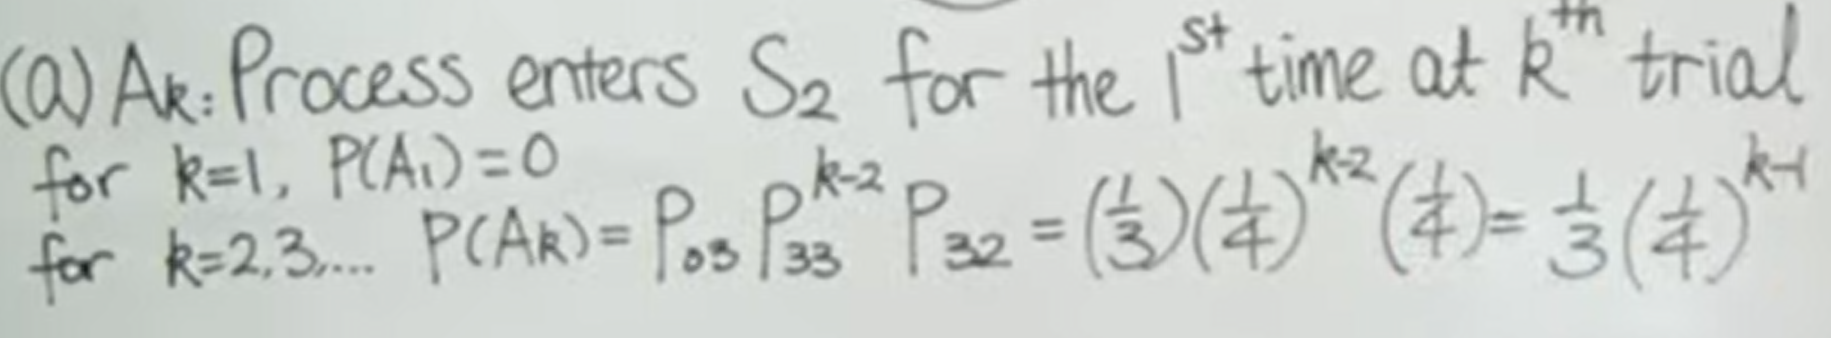 (a) Ak: Process enters S₂ for the 1ˢᵗ time at kᵗʰ trial
for k=1, P(A₁)=0
for k=2,3,... P(Ak)= P₀₃ P₃₃ᵏ⁻² P₃₂ = (1/3)(1/4)ᵏ⁻²(1/4)= 1/3(1/4)ᵏ⁻¹